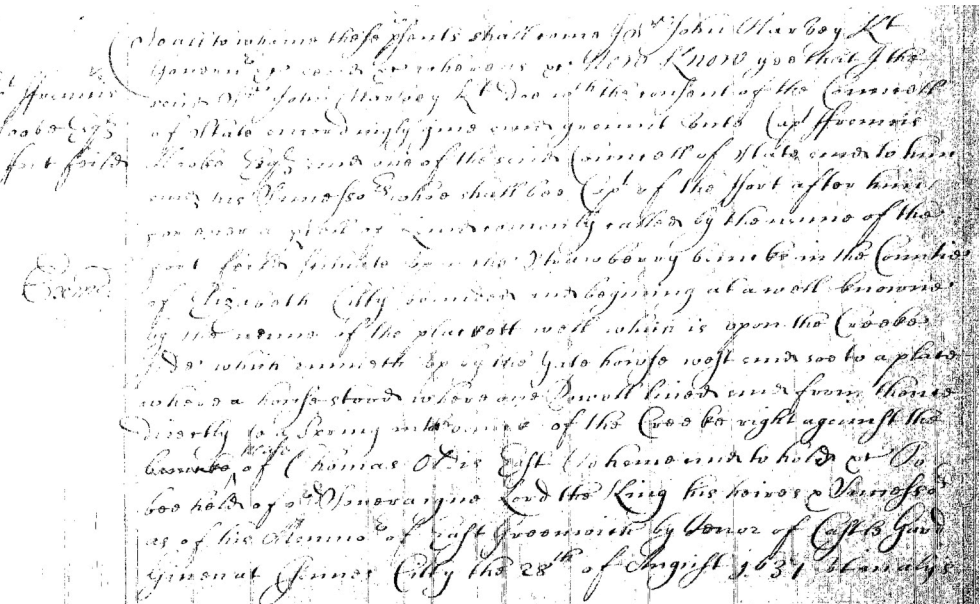 To all to whome these psents shall come I Sr John Harvey Kt
Governr &c send &c whereas &c Now Know yee that I the
said Sr John Harvey Kt doe wth the consent of the Councell
of State accordingly give and graunt unto Capt ffrancis
Hooke Esqr and one of the said Councell of State and to him
and his Successors whoe shall bee Capt of the ffort after him
for ever a of Land comonly called by the name of the
fort feild scituate upon the Strawberry bancke in the Countie
of Elizabeth Citty bounded and begining at a well knowne
by the name of the well which is upon the Creeke
side which runneth up by the Gate howse west and soe to a place
where a howse stood where one Powell lived and from thence
directly to a Spring of the Creeke right against the
howse of Thomas Oldis East To have and to hold &c To
bee held of or Soveraigne Lord the King his heires & Successors
as of his Mannor of East Greenwich by Tenor of Castle Gard
Given at James Citty the 28th of August 1637
Capt ffrancis
Hooke Esqr
fort feild